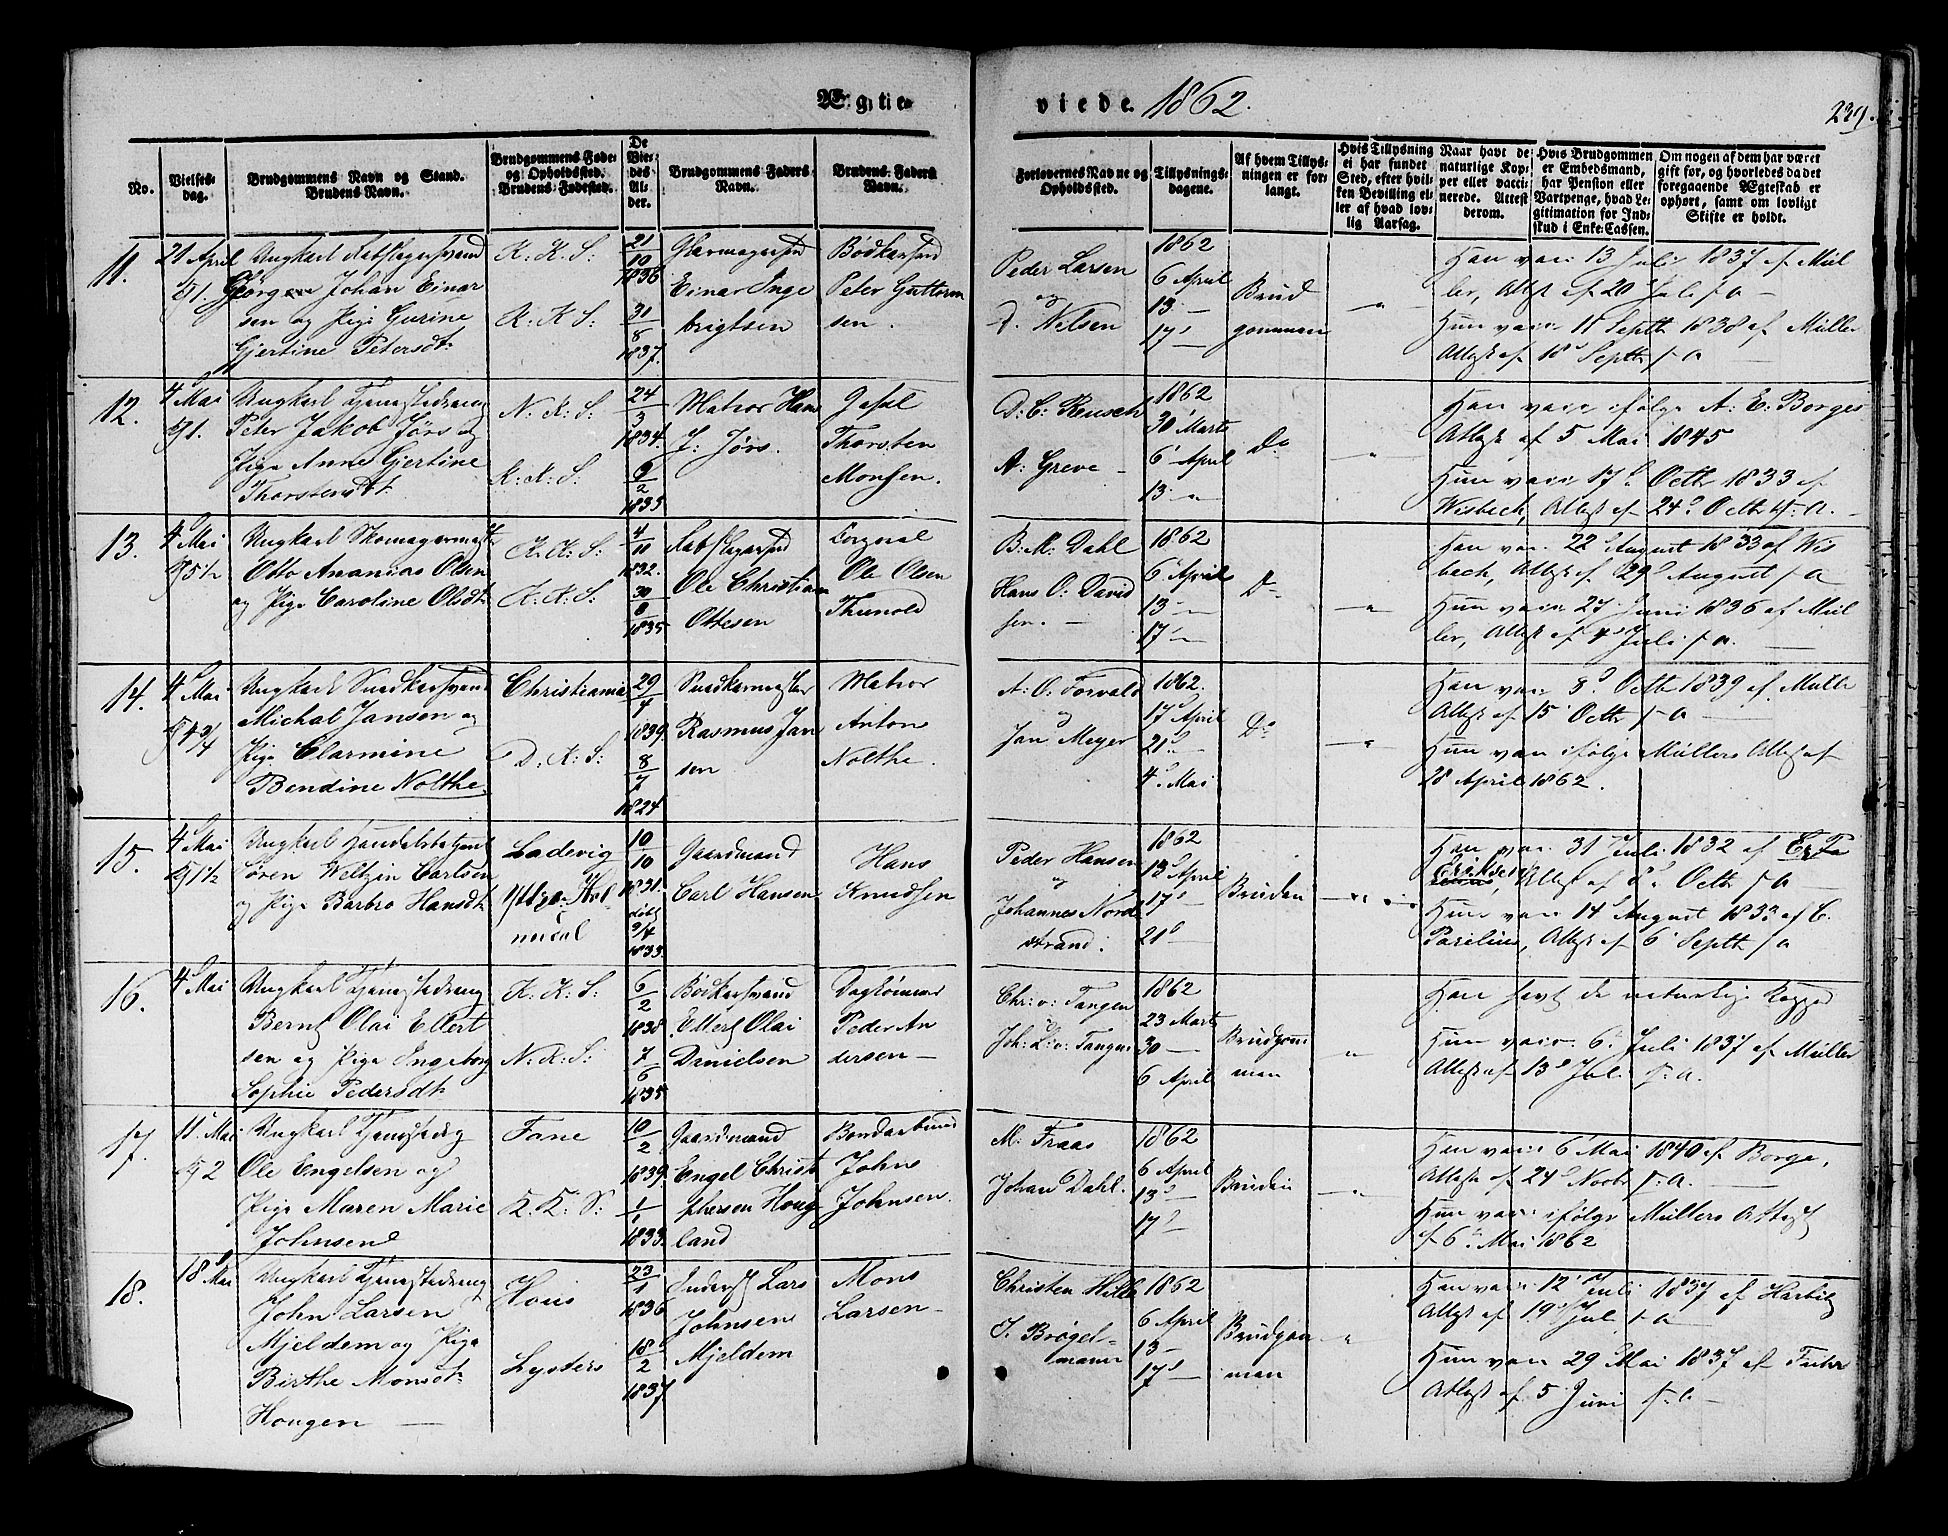 Ægte-
viede 1862.
239.
No.
Vielses-
dag.
Brudgommens Navn og Stand.
Brudens Navn.
Brudgommens Føde-
og Opholdssted.
Brudens Fødested.
De
Vie-
des
Al-
der.
Brudgommens Faders
Navn.
Brudens Faders
Navn.
Forlovernes Navne og
Opholdssted.
Tillysnings-
dagene.
Af hvem Tillys-
ningen er for-
langt.
Hvis Tillysning
ei har fundet
Sted, efter hvil-
ken Bevilling el-
ler af hvad lov-
lig Aarsag.
Naar havt de
naturlige Kop-
per eller vacci-
nerede. Attest
derom.
Hvis Brudgommen
er Embedsmand,
har Pension eller
Vartpenge, hvad Le-
gitimation for Ind-
skud i Enke-Cassen.
Om nogen af dem har været
gift før, og hvorledes da det
foregaaende Ægteskab er
ophørt, samt om lovligt
Skifte er holdt.
11.
21 April
Ungkarl
Johan Einar
sen og Pige Gurine
Gjertine Petersdt.
K: K: S:
K: K: S:
21
10
1836
31
8
1837.
Einar Inge
brigtsen
Peter Guttorm
sen.
Peder Larsen
og
D. Nilsen
1862
6 April
13 —
17 —
Brud
gommen
"
Han vacc. 13 Juli 1837 af Mül
ler, Attest af 20 Juli s. a —
Hun vacc. 11 Septb 1838 af Müller
Attest af 18 Septb s. a —
12.
4 Mai
Ungkarl Tjenestedreng
Peter Jakob Jørs og
Pige Anne Gjertine
Thorstensdt.
N: K: S:
K: K: S:
24
3
1834.
9
2
1833
Matros Han
J: Jørs.
Thorsten
Monsen.
D: C: Reusch
A: Greve —
1862
30 Marts
6 April
13 "
Do
"
Han vacc. ifølge A: E: Borges
Attest af 5 Mai 1845
Hun vacc. 17 Octb 1833 af
Wisbech, Attest af 24 Octb s. a. —
13.
4 Mai
5½
Ungkarl Skomagermester
Otto Ananias Olsen
og Pige Caroline Olsdt.
K: K: S:
K: K: S:
4
11
1832.
30
8
1835
Ole Christian
Ottesen
Ole Olsen
Thunold
B: M: Dahl
Hans O: David
sen. —
1862
6 April
13 —
17 —
Do
"
Han vac. 22 August 1833 af Wis
bech, Attest af 29 August s. a
Hun vacc. 27 Juni 1836 af Mül
ler, Attest af 4 Juli s. a. —
14.
4 Mai
4¾
Ungkarl Snedkersvend
Michal Jansen og
Pige Clarmine
Bendine Nolthe
Christiania
D: K: S:
29
4
1839.
8
7
1824
Snedkermester
Rasmus Jan
sen
Matros
Anton
Nolthe.
A: O. Forvald
og
Jan Meyer
1862.
17 April
21 "
4 Mai
Do
"
Han vacc. 8 Octb 1839 af Mülle
Attest af 15 Octb s. a —
Hun vacc. ifølge Müllers Attest af
28 April 1862.
15.
4 Mai
1½
Ungkarl Handelsbetjent
Søren Weltzin Carlsen
og Pige Barbro Hansdt.
Ladevig
10
10
1831.
døbt
9/4
1833.
Gaardmand
Carl Hansen
Hans
Knudsen
Peder Hansen
og
Johannes Nord
strand.
1862
13 April
17 —
21
Bruden
"
Han vac. 31 Juli 1832 af
Eriksen, Attest af 8 Octb s. a —
Hun vacc. 14 August 1833 af C.
Attest af 6 Septb s. a
16.
4 Mai
Ungkarl Tjenestedreng
Bernt Olai Ellert
sen og Pige Ingeborg
Sophie Pedersdt.
K: K: S:
N: K: S:
6
2
1838
7
6
1835
Bødkersvend
Ellert Olai
Danielsen
Peder An
dersen —
Chr: v: Tangen
og
Joh: L: v: Tangen
1862
23 Marts
30 —
6 April
Brudgom
man
"
Han havt de naturlige Kopper
Hun vacc. 6 Juli 1837 af Müller
Attest af 13 Juli s. a.
17.
11 Mai
2
Ungkarl Tjenestedreng
Ole Engelsen og
Pige Maren Marie
Johnsen
Fane
K: K: S:
10
2
1839.
1
1
1833.
Gaardmand
Engel Christ
phersen Houg
land
John
Johnsen.
M: Fraas
Johan Dahl.
1862
6 April
13 —
17 —
Bruden
"
Han vacc. 6 Mai 1840 af Borge,
Attest af 24 Novbr s. a. —
Hun vacc. ifølge Müllers Attest
af 6 Mai 1862
18.
18 Mai
Ungkarl Tjenestedreng
John Larsen
Mjeldem og Pige
Birthe Monsdt.
Hougen —
Hous
Lysters
23
1
1836
18
2
1837
Inderst Lars
Johnsen
Mjeldem
Mons
Larsen —
Christen Hille
J. Brøgel-
mann
1862
6 April
13 —
17 —
Brudgom
man
"
Han vacc. 12 Juli 1837 af Harbitz
Attest af 19 Juli s. a —
Hun vacc. 29 Mai 1837 af
Attest af 5 Juni s. a —